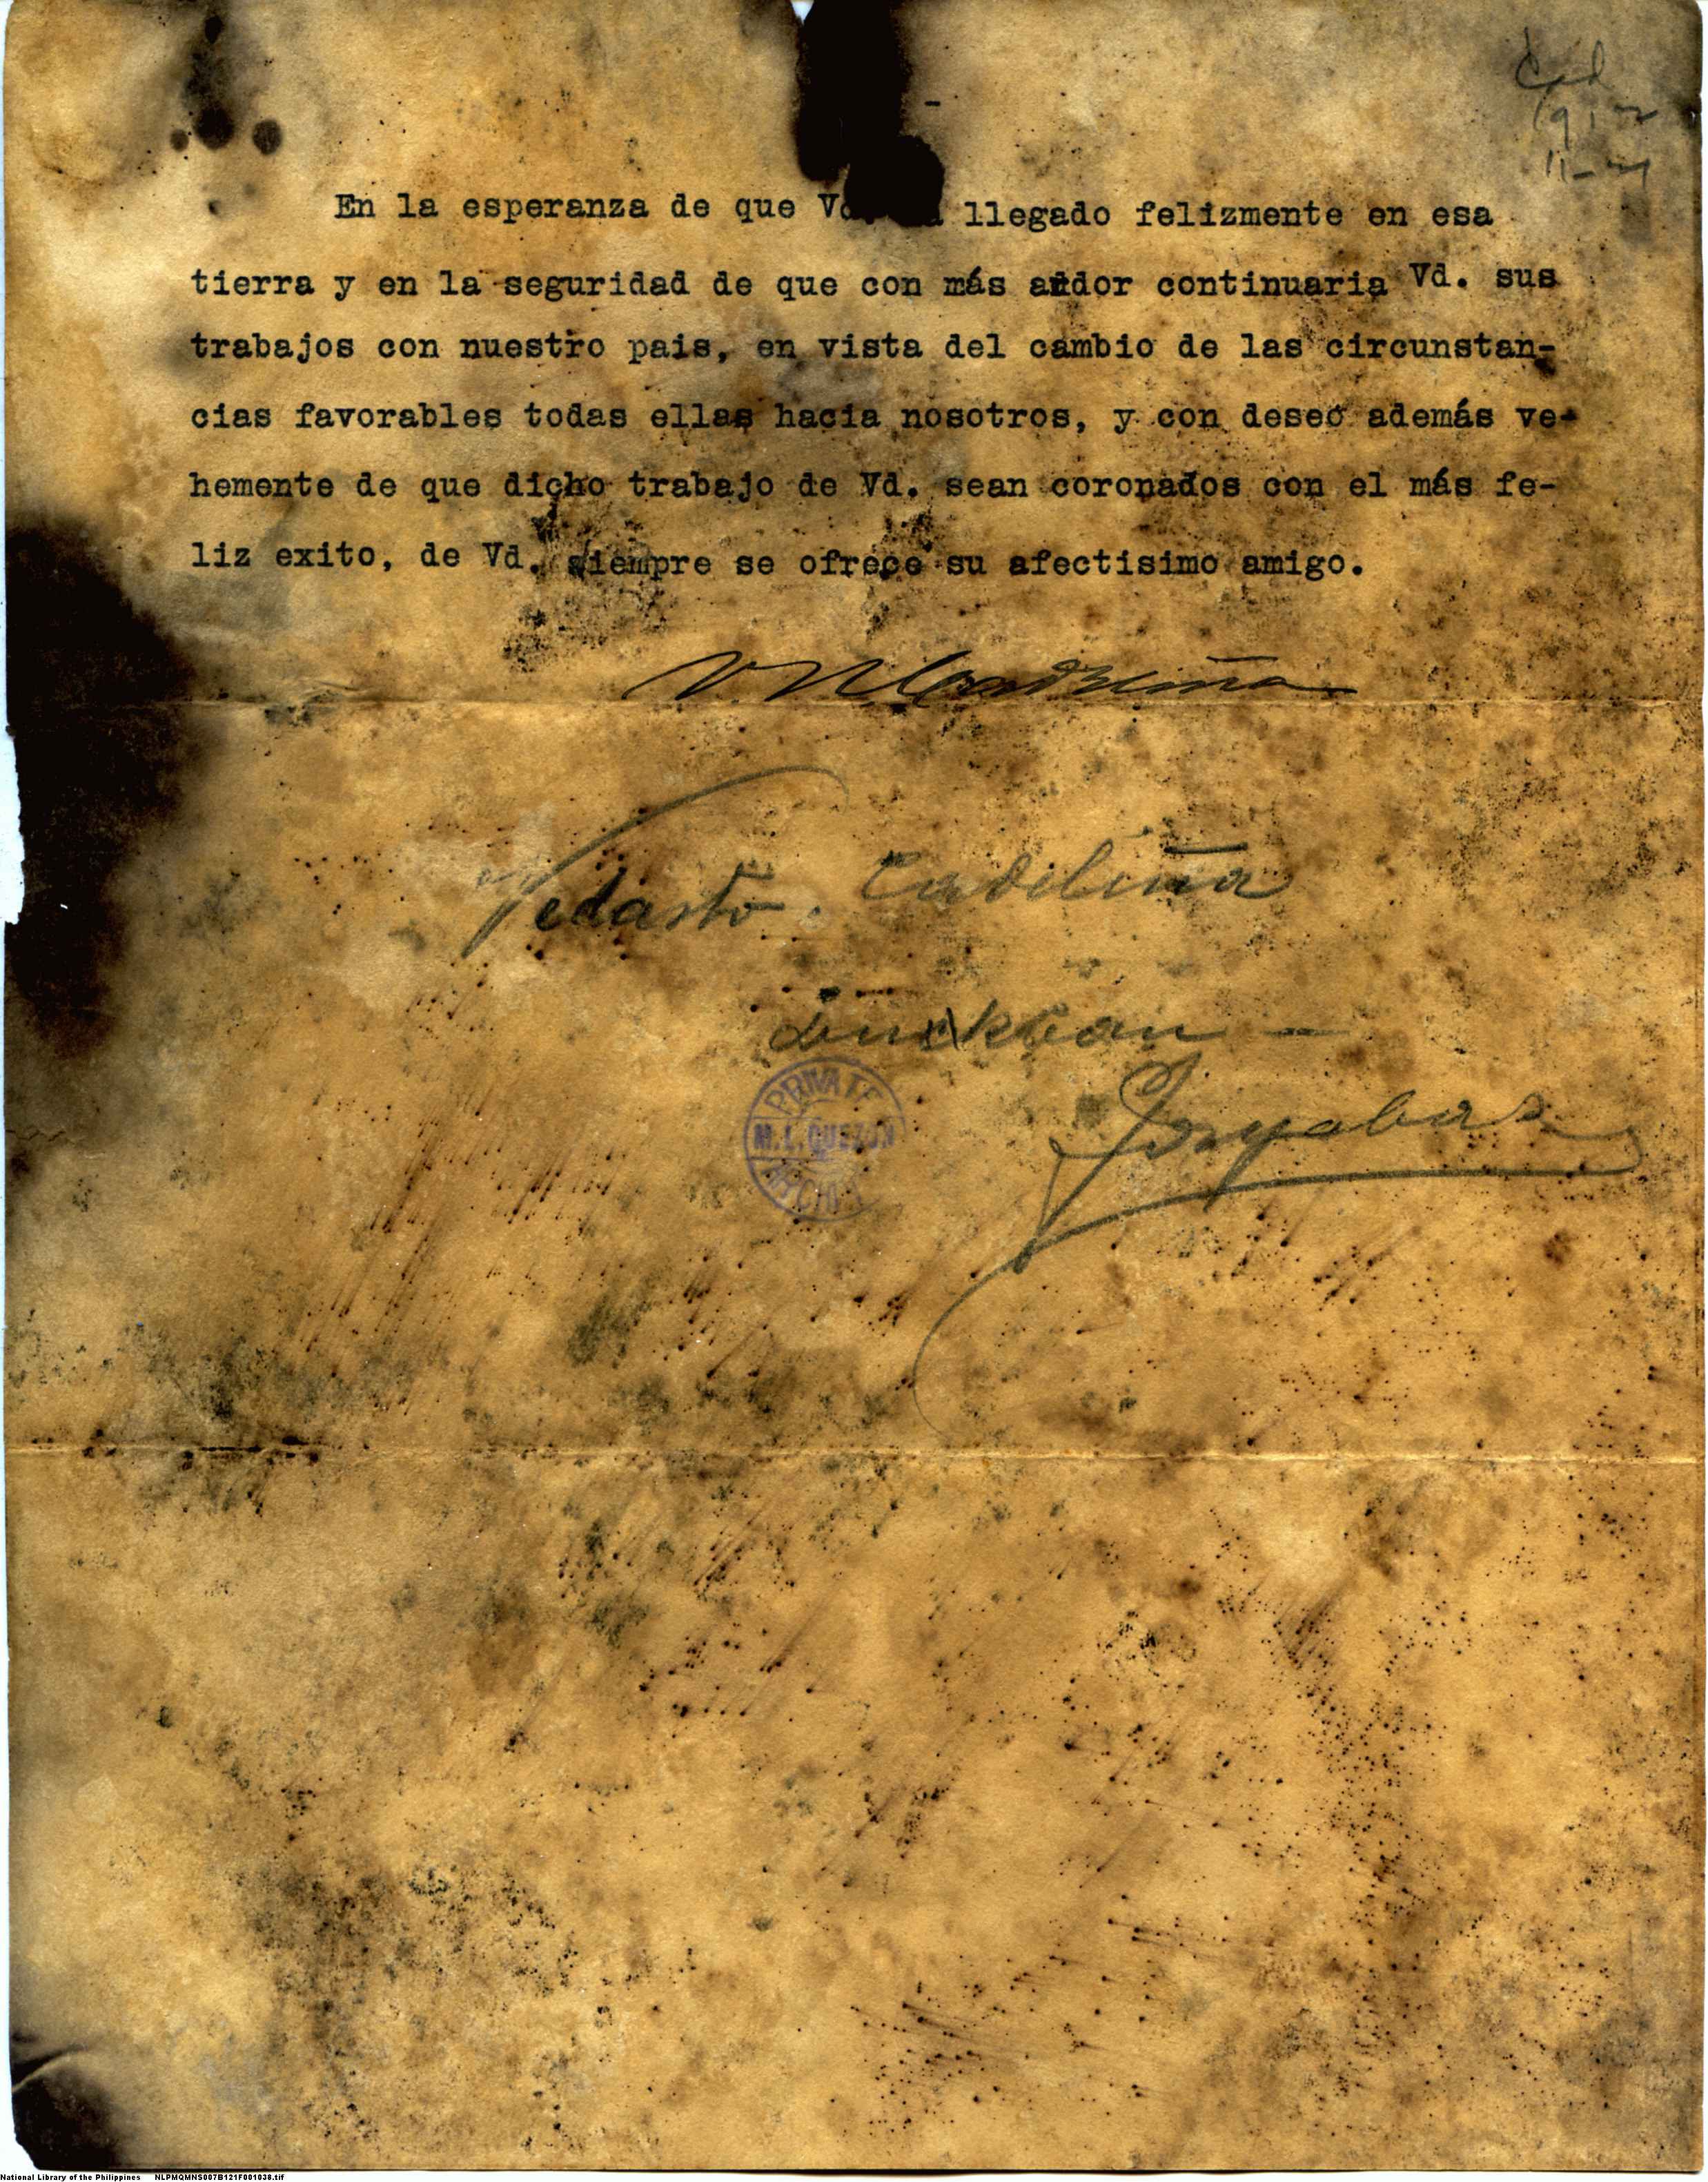 En la esperanza de que Vd. llegado felizmente en esa
tierra y en la seguridad de que con más ardor continuaria Vd. sus
trabajos con nuestro pais, en vista del cambio de las circunstan-
cias favorables todas ellas hacia nosotros, y con deseo además ve-
hemente de que dicho trabajo de Vd. sean coronados con el más fe-
liz exito, de Vd. siempre se ofrece su afectisimo amigo.
Vedasto Cadiliña
Lukban -
Tayabas
PRIVATE
M. L. QUEZON
National Library of the Philippines NLPMQMNS007B121F001038.tif